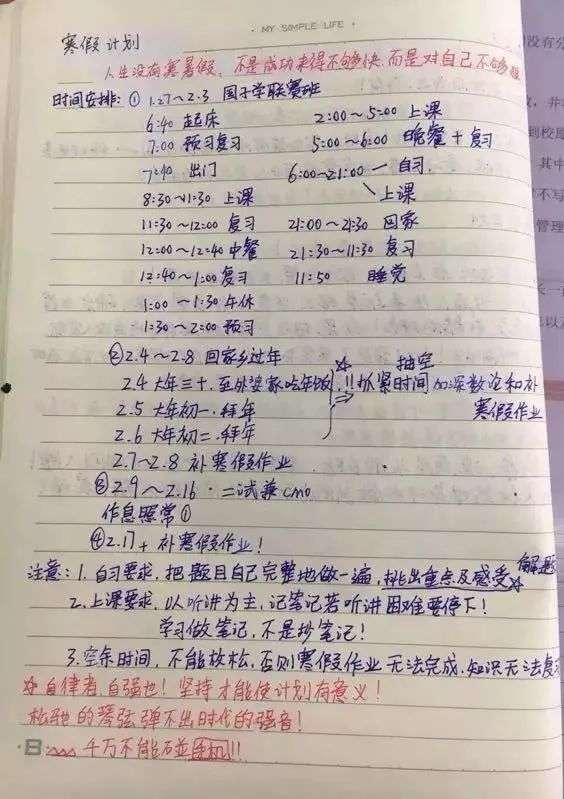 MY SIMPLE LIFE
寒假计划
人生没有寒暑假,不是成功来得不够快,而是对自己不够狠
时间安排:① 1.27~2.3 国子学联赛班
6:40 起床 2:00~5:00 上课
7:00 预习复习 5:00~6:00 晚餐+复习
7:40 出门 6:00~21:00 一自习.
上课
8:30~11:30 上课
11:30~12:00 复习 21:00~21:30 回家
12:00~12:40 中餐 21:30~11:30 复习
12:40~1:00 复习 11:50 睡觉
1:00~1:30 午休
1:30~2:00 预习
②2.4~2.8 回家乡过年
2.4 大年三十.至外婆家吃年饭. ☆ 抽空
!!抓紧时间加深数论和补
2.5 大年初一.拜年 寒假作业
2.6 大年初二.拜年
2.7~2.8 补寒假作业
③2.9~2.16.二试兼cmo
作息照常①
④2.17+ 补寒假作业!
注意:1.自习要求,把题目自己完整地做一遍,挑出重点及感受☆解题
2.上课要求.以听讲为主,记笔记若听讲困难要停下!
学习做笔记,不是抄笔记!
3.空余时间,不能放松,否则寒假作业无法完成,知识无法复
☆自律者,自强也!坚持才能使计划有意义!
松弛的琴弦弹不出时代的强音!
千万不能碰手机!!